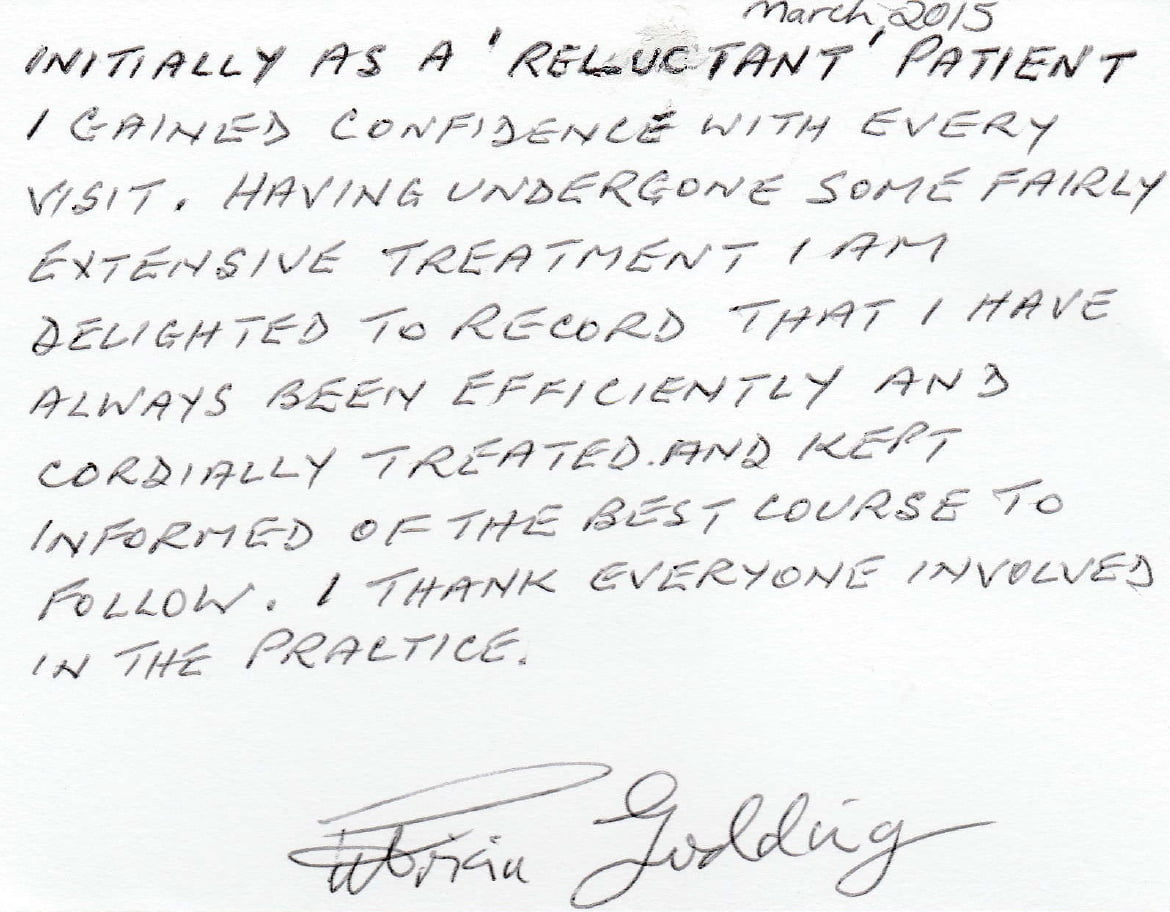 March, 2015
INITIALLY AS A 'RELUCTANT' PATIENT
I GAINED CONFIDENCE WITH EVERY
VISIT. HAVING UNDERGONE SOME FAIRLY
EXTENSIVE TREATMENT I AM
DELIGHTED TO RECORD THAT I HAVE
ALWAYS BEEN EFFICIENTLY AND
CORDIALLY TREATED. AND KEPT
INFORMED OF THE BEST COURSE TO
FOLLOW. I THANK EVERYONE INVOLVED
IN THE PRACTICE.
Golding